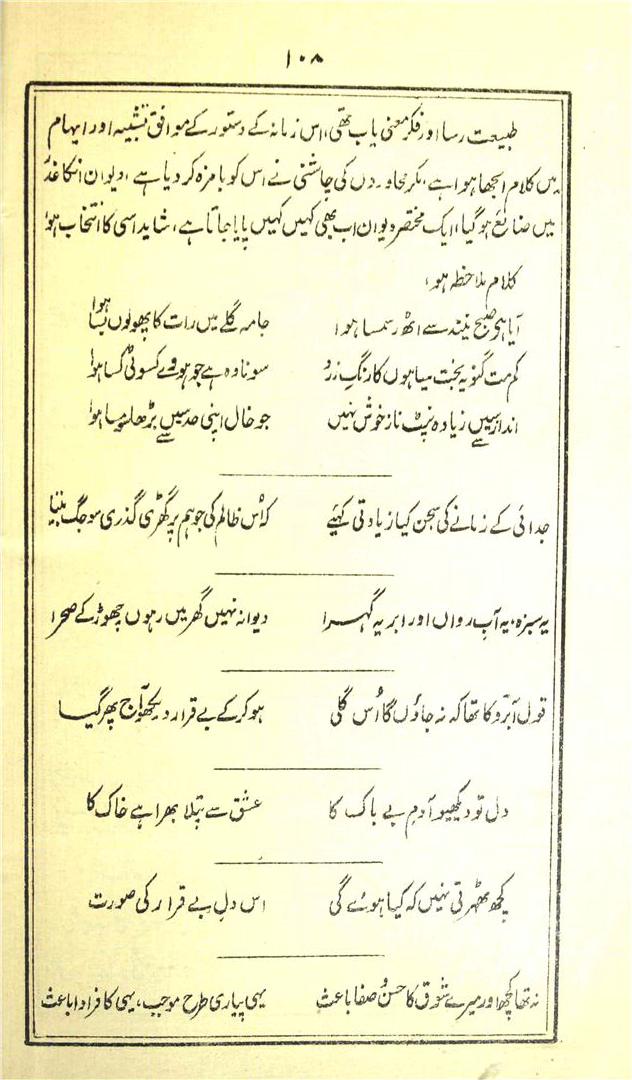 ۱۰۸
طبیعت رسا اور فکر معنی یاب تھی، اس زمانہ کے دستور کے موافق تشبیہ اور ایہام
میں کلام الجھا ہوا ہے، مگر محاوردں کی چاشنی نے اس کو بامزہ کر دیا ہے، دیوان انکا غدر
میں ضائع ہو گیا، ایک مختصر دیوان اب بھی کہیں کہیں پایا جاتا ہے، شاید اسی کا انتخاب ہو
کلام ملاحظہ ہو،
آیا ہی صبح نیند سے اٹھ رسمسا ہوا جامہ گلے میں رات کا پھولوں بسا ہوا
کم مت گنو یہ بخت سیاہوں کا رنگِ زرد سونا وہ ہے جو ہووے کسوٹی کسا ہوا
انداز سیں زیادہ نپٹ ناز خوش نہیں جو خال اپنی حد سیں بڑھا سو مسا ہوا
جدائی کے زمانے کی سجن کیا زیادتی کہیے کہ اُس ظالم کی جو ہم پر گھڑی گذری سو جگ بیتیا
یہ سبزہ، یہ آبِ رواں اور ابر یہ گہرا دیوانہ نہیں گھر میں رہوں چھوڑ کے صحرا
قول آبرو کا تھا کہ نہ جاؤں گا اُس گلی ہو کر کے بے قرار دیکھو آج پھر گیا
دل تو دیکھیو آدمِ بے باک کا عشق سے پتلا بھرا ہے خاک کا
کچھ ٹھہرتی نہیں کہ کیا ہوئے گی اس دلِ بے قرار کی صورت
نہ تھا کچھ اور میرے شوق کا حسن و صفا باعث یہی پیاری طرح موجب، یہی کافر ادا باعث